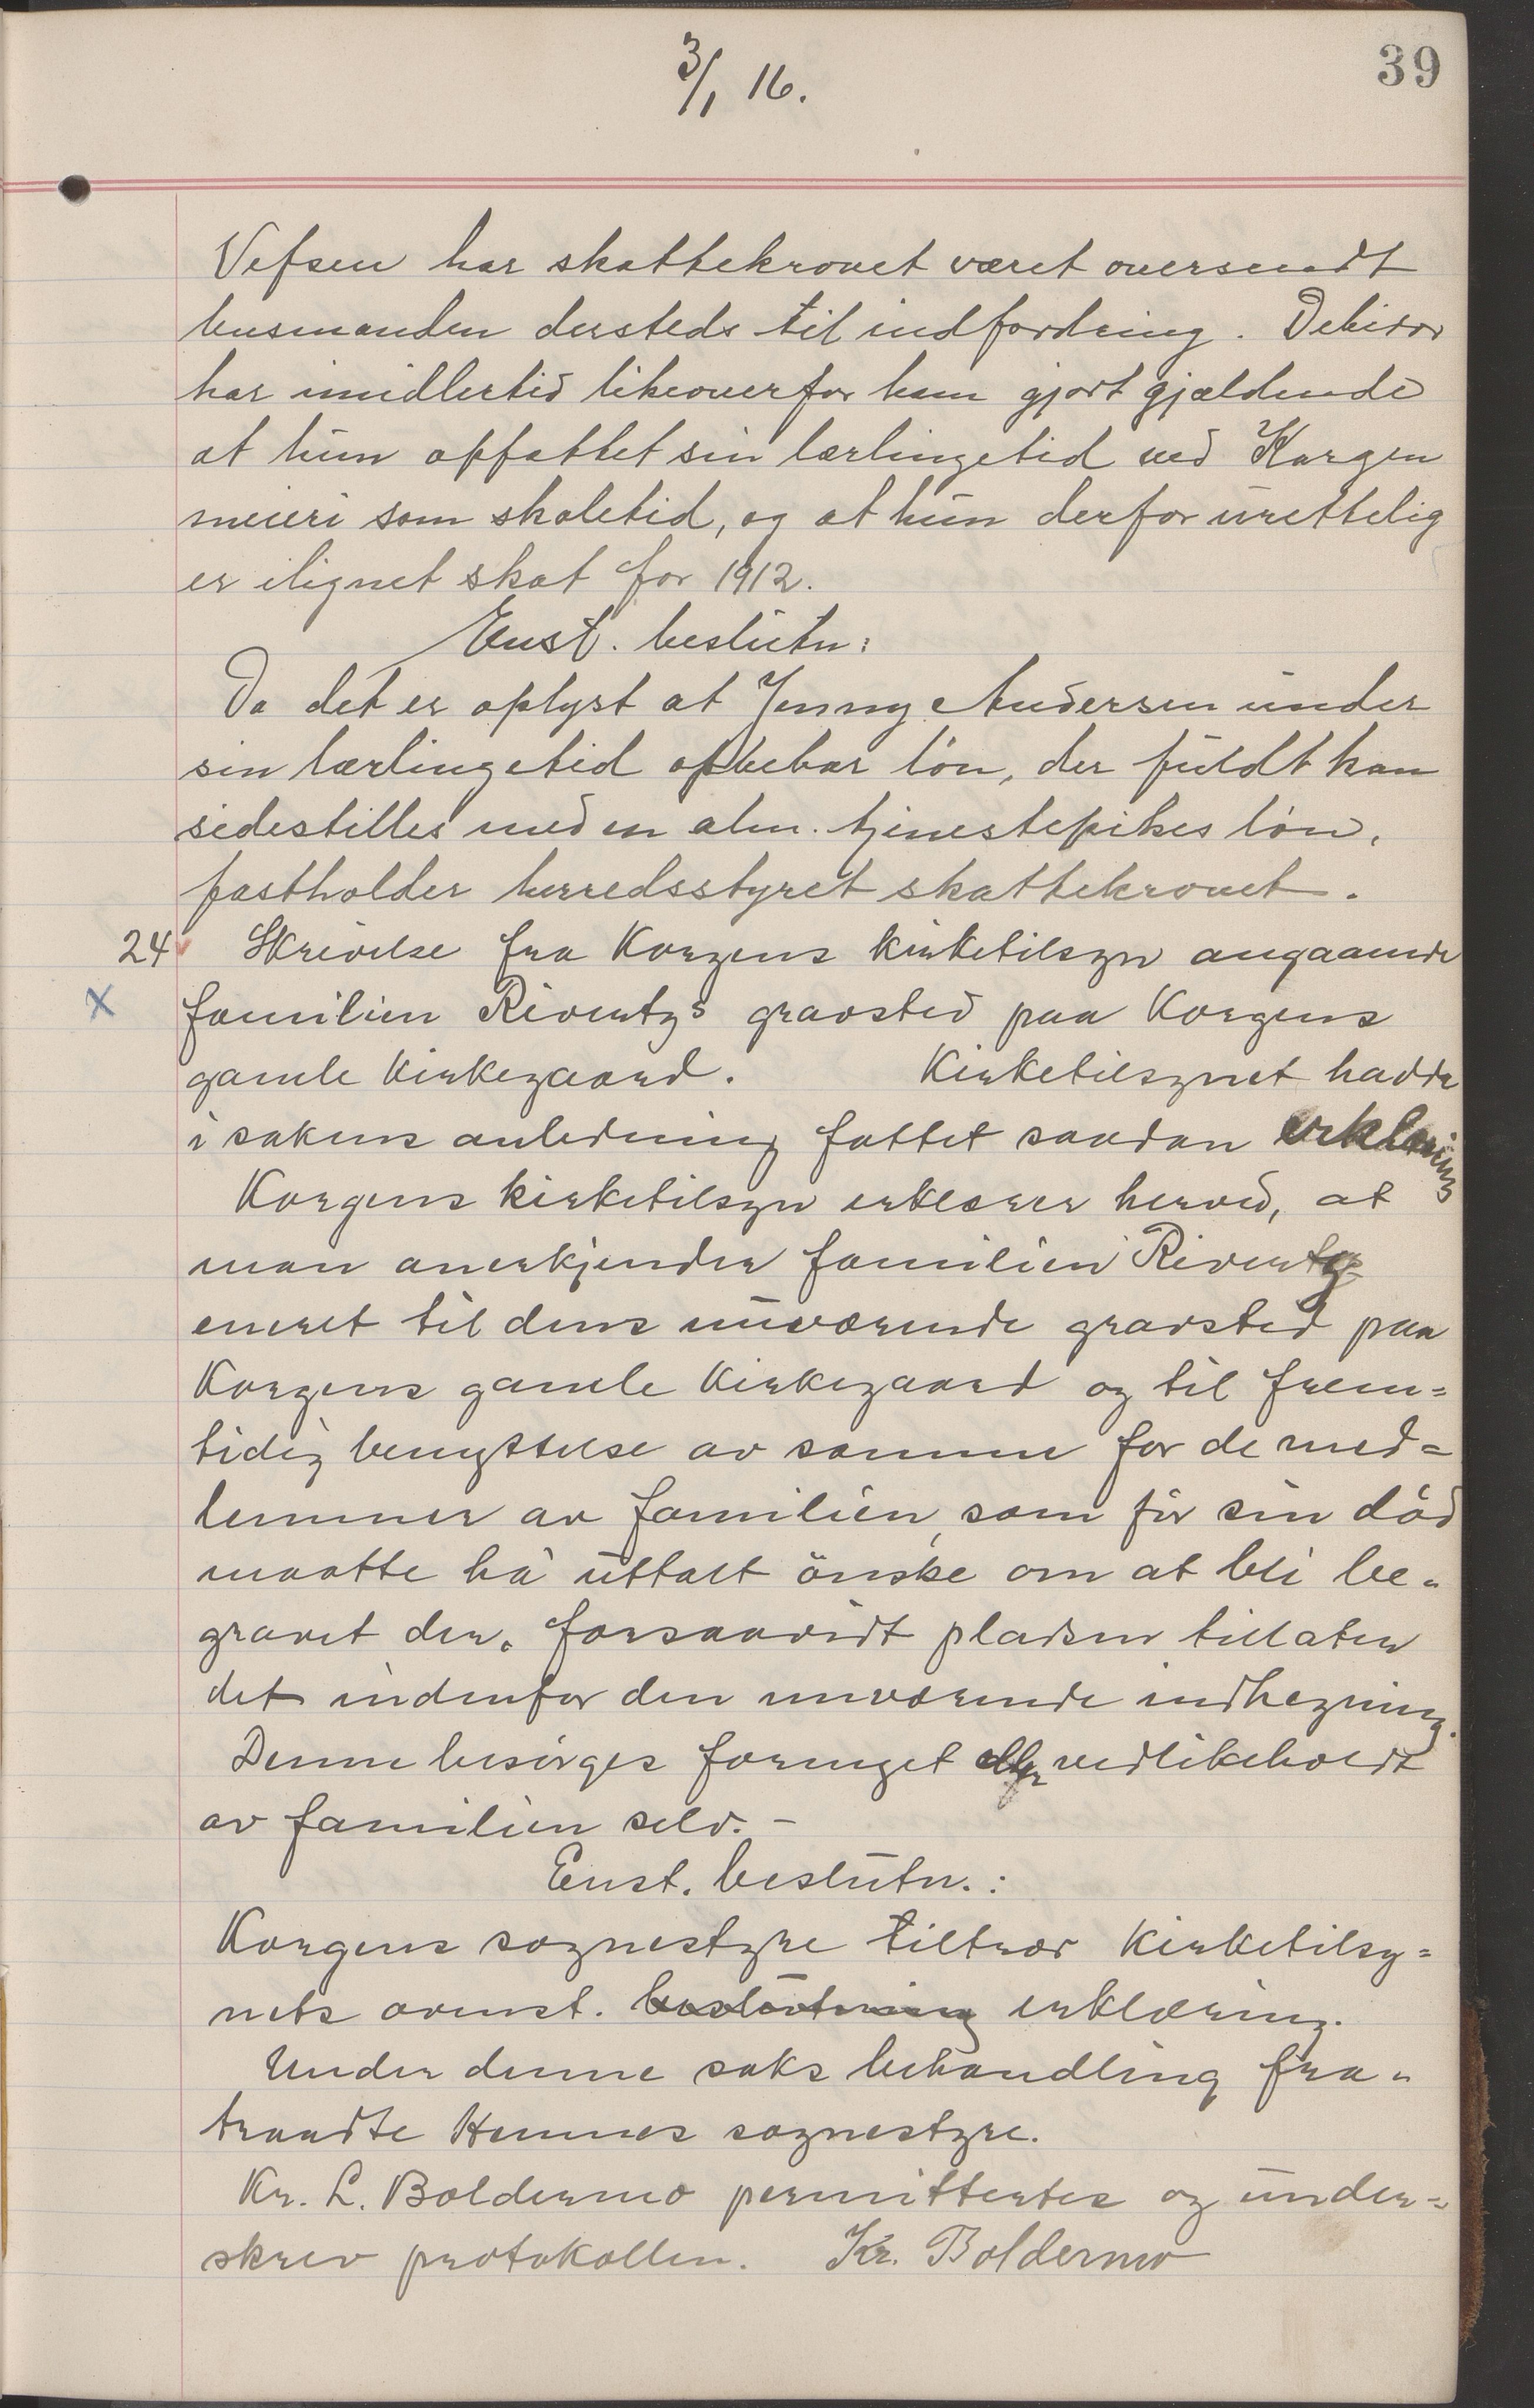 39
3/1 16.
Vefsen har skattekravet været oversendt
lensmanden dersteds til indfordring. Debitor
har imidlertid likeoverfor ham gjort gjældende
at hun opfattet sin lærlingetid ved Korgen
meieri som skoletid, og at hun derfor urettelig
er ilignet skat for 1912.
Enst. beslutn:
Da det er oplyst at Jenny Andersen under
sin lærlingetid oppebar løn, der fuldt kan
sidestilles med en alm. tjenestepikes løn,
fastholder herredsstyret skattekravet.
24 Skrivelse fra Korgens kirketilsyn angaaende
X familien Rivertz's gravsted paa Korgens
gamle kirkegaard. Kirketilsynet hadde
i sakens anledning fattet saadan erklæring
Korgens kirketilsyn erklærer herved, at
man anerkjender familien Rivertz
eneret til dens nuværende gravsted paa
Korgens gamle kirkegaard og til frem=
tidig benyttelse av samme for de med=
lemmer av familien, som før sin død
maatte ha uttalt ønske om at bli be=
gravet der, forsaavidt pladsen tillater
det indenfor den nuværende indhegning.
Denne besørges fornyet eller vedlikeholdt
av familien selv. -
Enst. beslutn.:
Korgens sognestyre tiltrær kirketilsy=
nets ovenst. beslutning erklæring.
Under denne saks behandling fra=
traadte Hemnes sognestyre.
Kr. L. Boldermo permittertes og under=
skrev protokollen. Kr. Boldermo